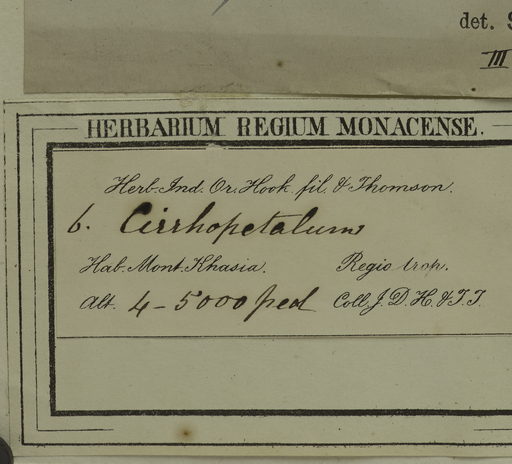 det.
III
HERBARIUM REGIUM MONACENSE.
Herb. Ind. Or. Hook. fil. & Thomson.
6. Cirrhopetalum
Hab. Mont. Khasia. Regio trop.
Alt. 4-5000 ped Coll. J. D. H. & T. T.